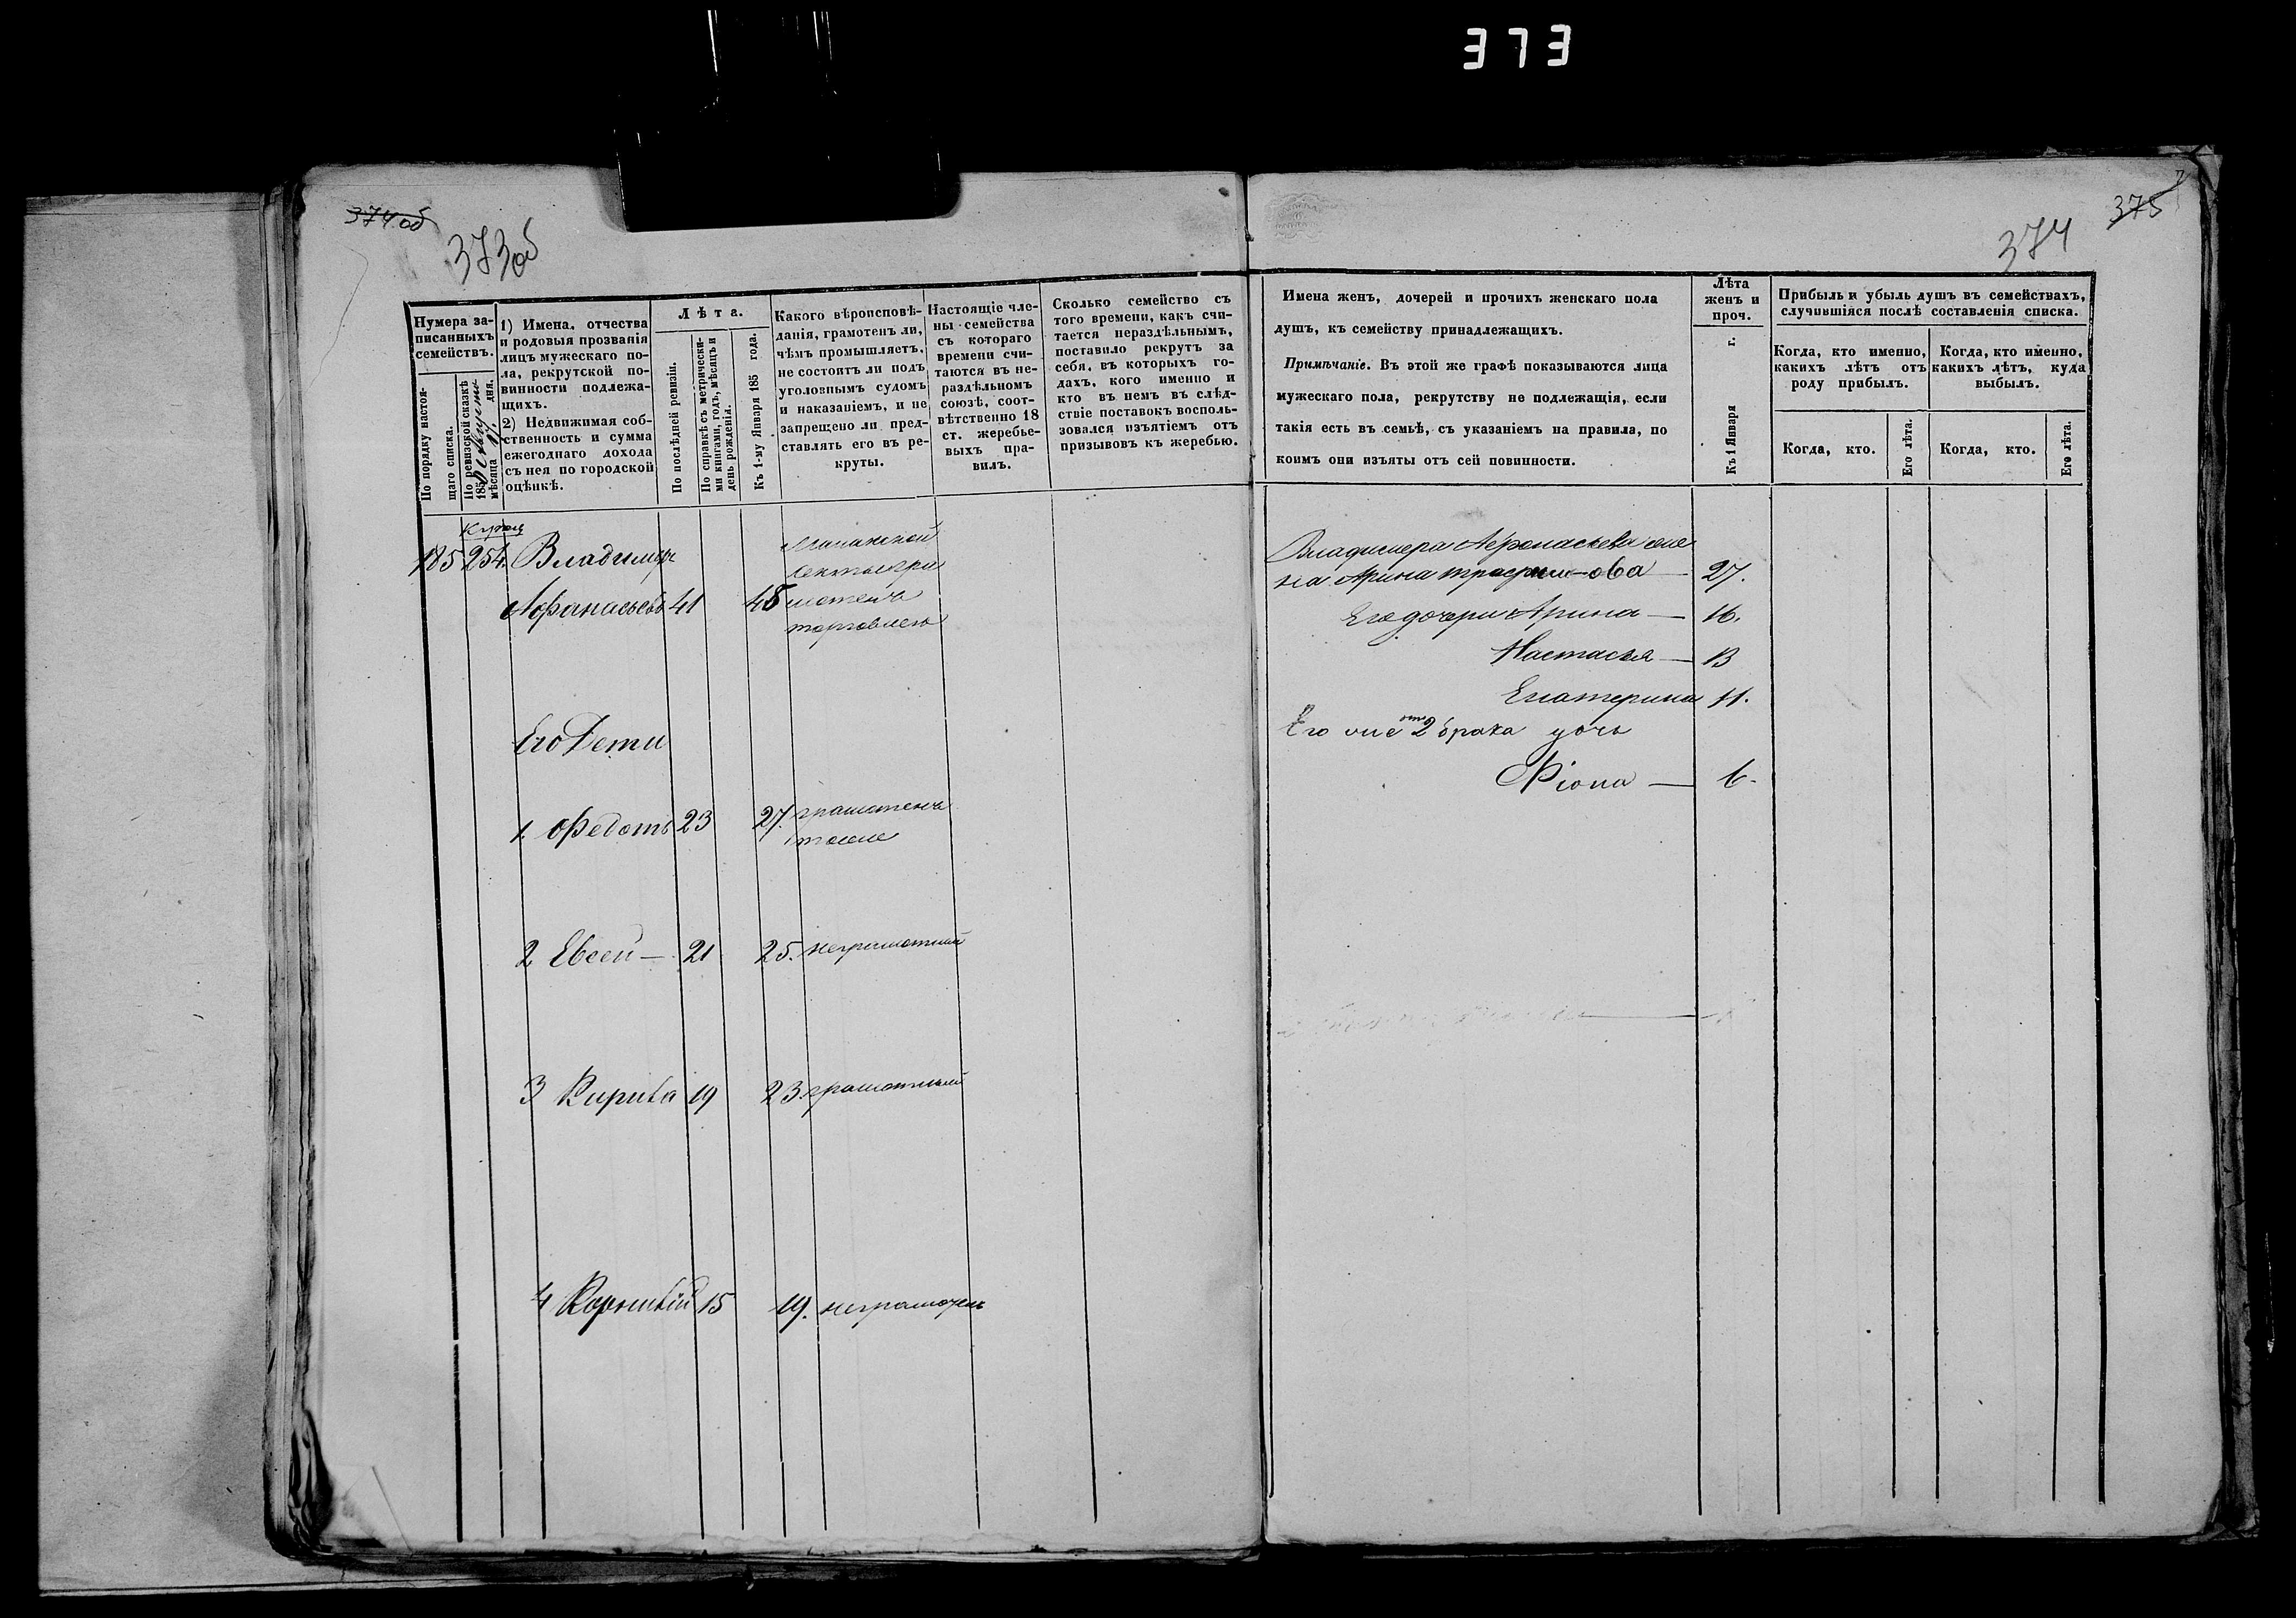 373
374 об
373 об
Нумера за-
писанныхъ
семействъ.
По порядку настоя-
щаго списка.
По ревизской сказкѣ
185
мѣсяца дня.
1) Имена, отчества
и родовыя прозванія
лицъ мужескаго по-
ла, рекрутской по-
винности подлежа-
щихъ.
2) Недвижимая соб-
ственность и сумма
ежегоднаго дохода
съ нея по городской
оцѣнкѣ.
Лѣта.
По послѣдней ревизіи.
По справкѣ съ метрически-
ми книгами, годъ, мѣсяцъ и
день рожденія.
Къ 1-му Января 185 года.
Какого вѣроисповѣ-
данія, грамотенъ ли,
чѣмъ промышляетъ,
не состоитъ ли подъ
уголовнымъ судомъ
и наказаніемъ, и не
запрещено ли пред-
ставлять его въ ре-
круты.
Настоящіе чле-
ны семейства
съ котораго
времени счи-
таются въ не-
раздѣльномъ
союзѣ, соот-
вѣтственно 18
ст. жеребье-
выхъ пра-
вилъ.
Сколько семейство съ
того времени, какъ счи-
тается нераздѣльнымъ,
поставило рекрутъ за
себя, въ которыхъ го-
дахъ, кого именно и
кто въ немъ въ слѣд-
ствіе поставокъ восполь-
зовался изъятіемъ отъ
призывовъ къ жеребью.
185 254. Владимеръ
Афанасьевъ 41 45
торговлею
Его Дети
1. Федотъ 23 27. грамотенъ
тоже
2 Евсей — 21 25. неграмотный
3 Кирила 19 23 грамотный
4 Корнилий 15 19. неграмотенъ
375
374
Имена женъ, дочерей и прочихъ женскаго пола
душъ, къ семейству принадлежащихъ.
Примѣчаніе. Въ этой же графѣ показываются лица
мужескаго пола, рекрутству не подлежащія, если
такія есть въ семьѣ, съ указаніемъ на правила, по
коимъ они изъяты отъ сей повинности.
Лѣта
женъ и
проч.
Къ 1 Января г.
Прибыль и убыль душъ въ семействахъ,
случившіяся послѣ составленія списка.
Когда, кто именно,
какихъ лѣтъ отъ
роду прибылъ.
Когда, кто именно,
какихъ лѣтъ, куда
выбылъ.
Когда, кто.
Его лѣта.
Когда, кто.
Его лѣта.
Владимера Афонасьева же
на Арина Трофимова — 27.
Его дочери Арина — 16.
Настасья — 13
Екатерина 11.
Его же от 2 брака дочь
Фіона — 6.